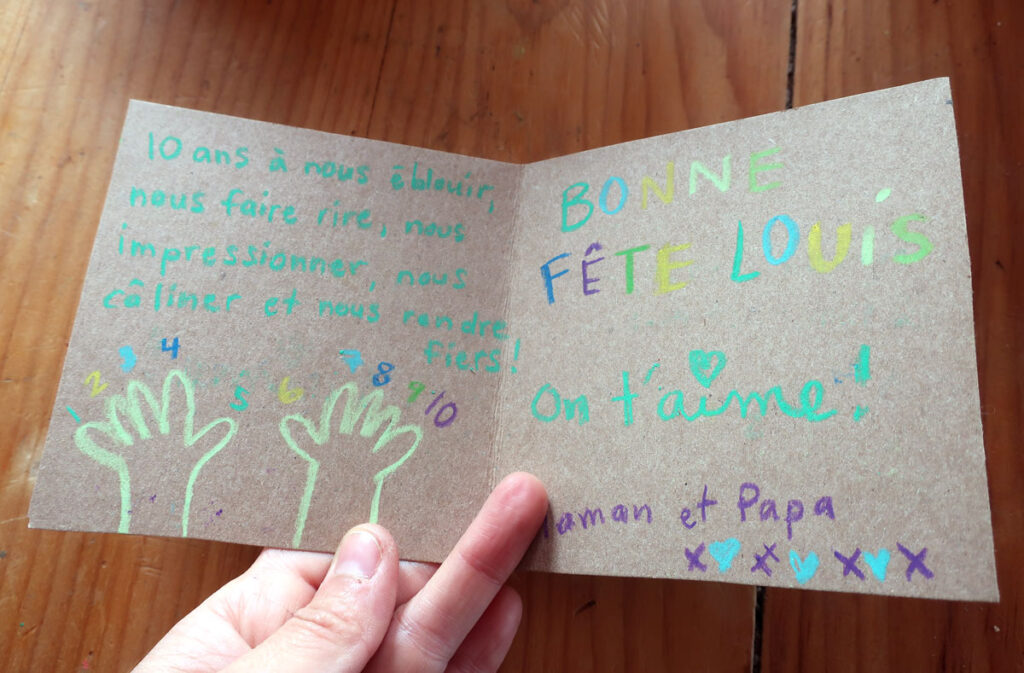 10 ans à nous éblouir,
nous faire rire, nous
impressionner, nous
câliner et nous rendre
fiers!
1 2 3 4 5 6 7 8 9 10
BONNE
FÊTE LOUiS
On t'aime!
Maman et Papa
x x x x